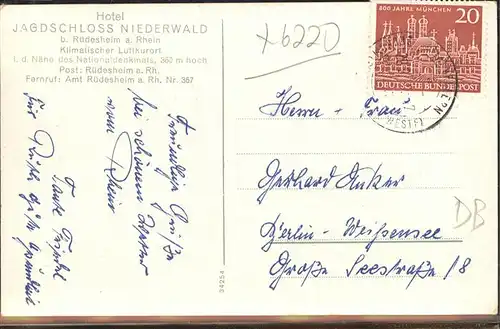 Hotel
JAGDSCHLOSS NIEDERWALD
b. Rüdesheim a. Rhein
Klimatischer Luftkurort
i. d. Nähe des Nationaldenkmals, 360 m hoch
Post: Rüdesheim a. Rh.
Fernruf: Amt Rüdesheim a. Rh. Nr. 357
x6220
800 JAHRE MÜNCHEN
20
DEUTSCHE BUNDESPOST
Freundliche Grüße
bei schönem
vom Rhein
Tante
für
Herrn u. Frau
Gerhard Anker
Berlin-Weißensee
Große Seestraße 18
DB
34254